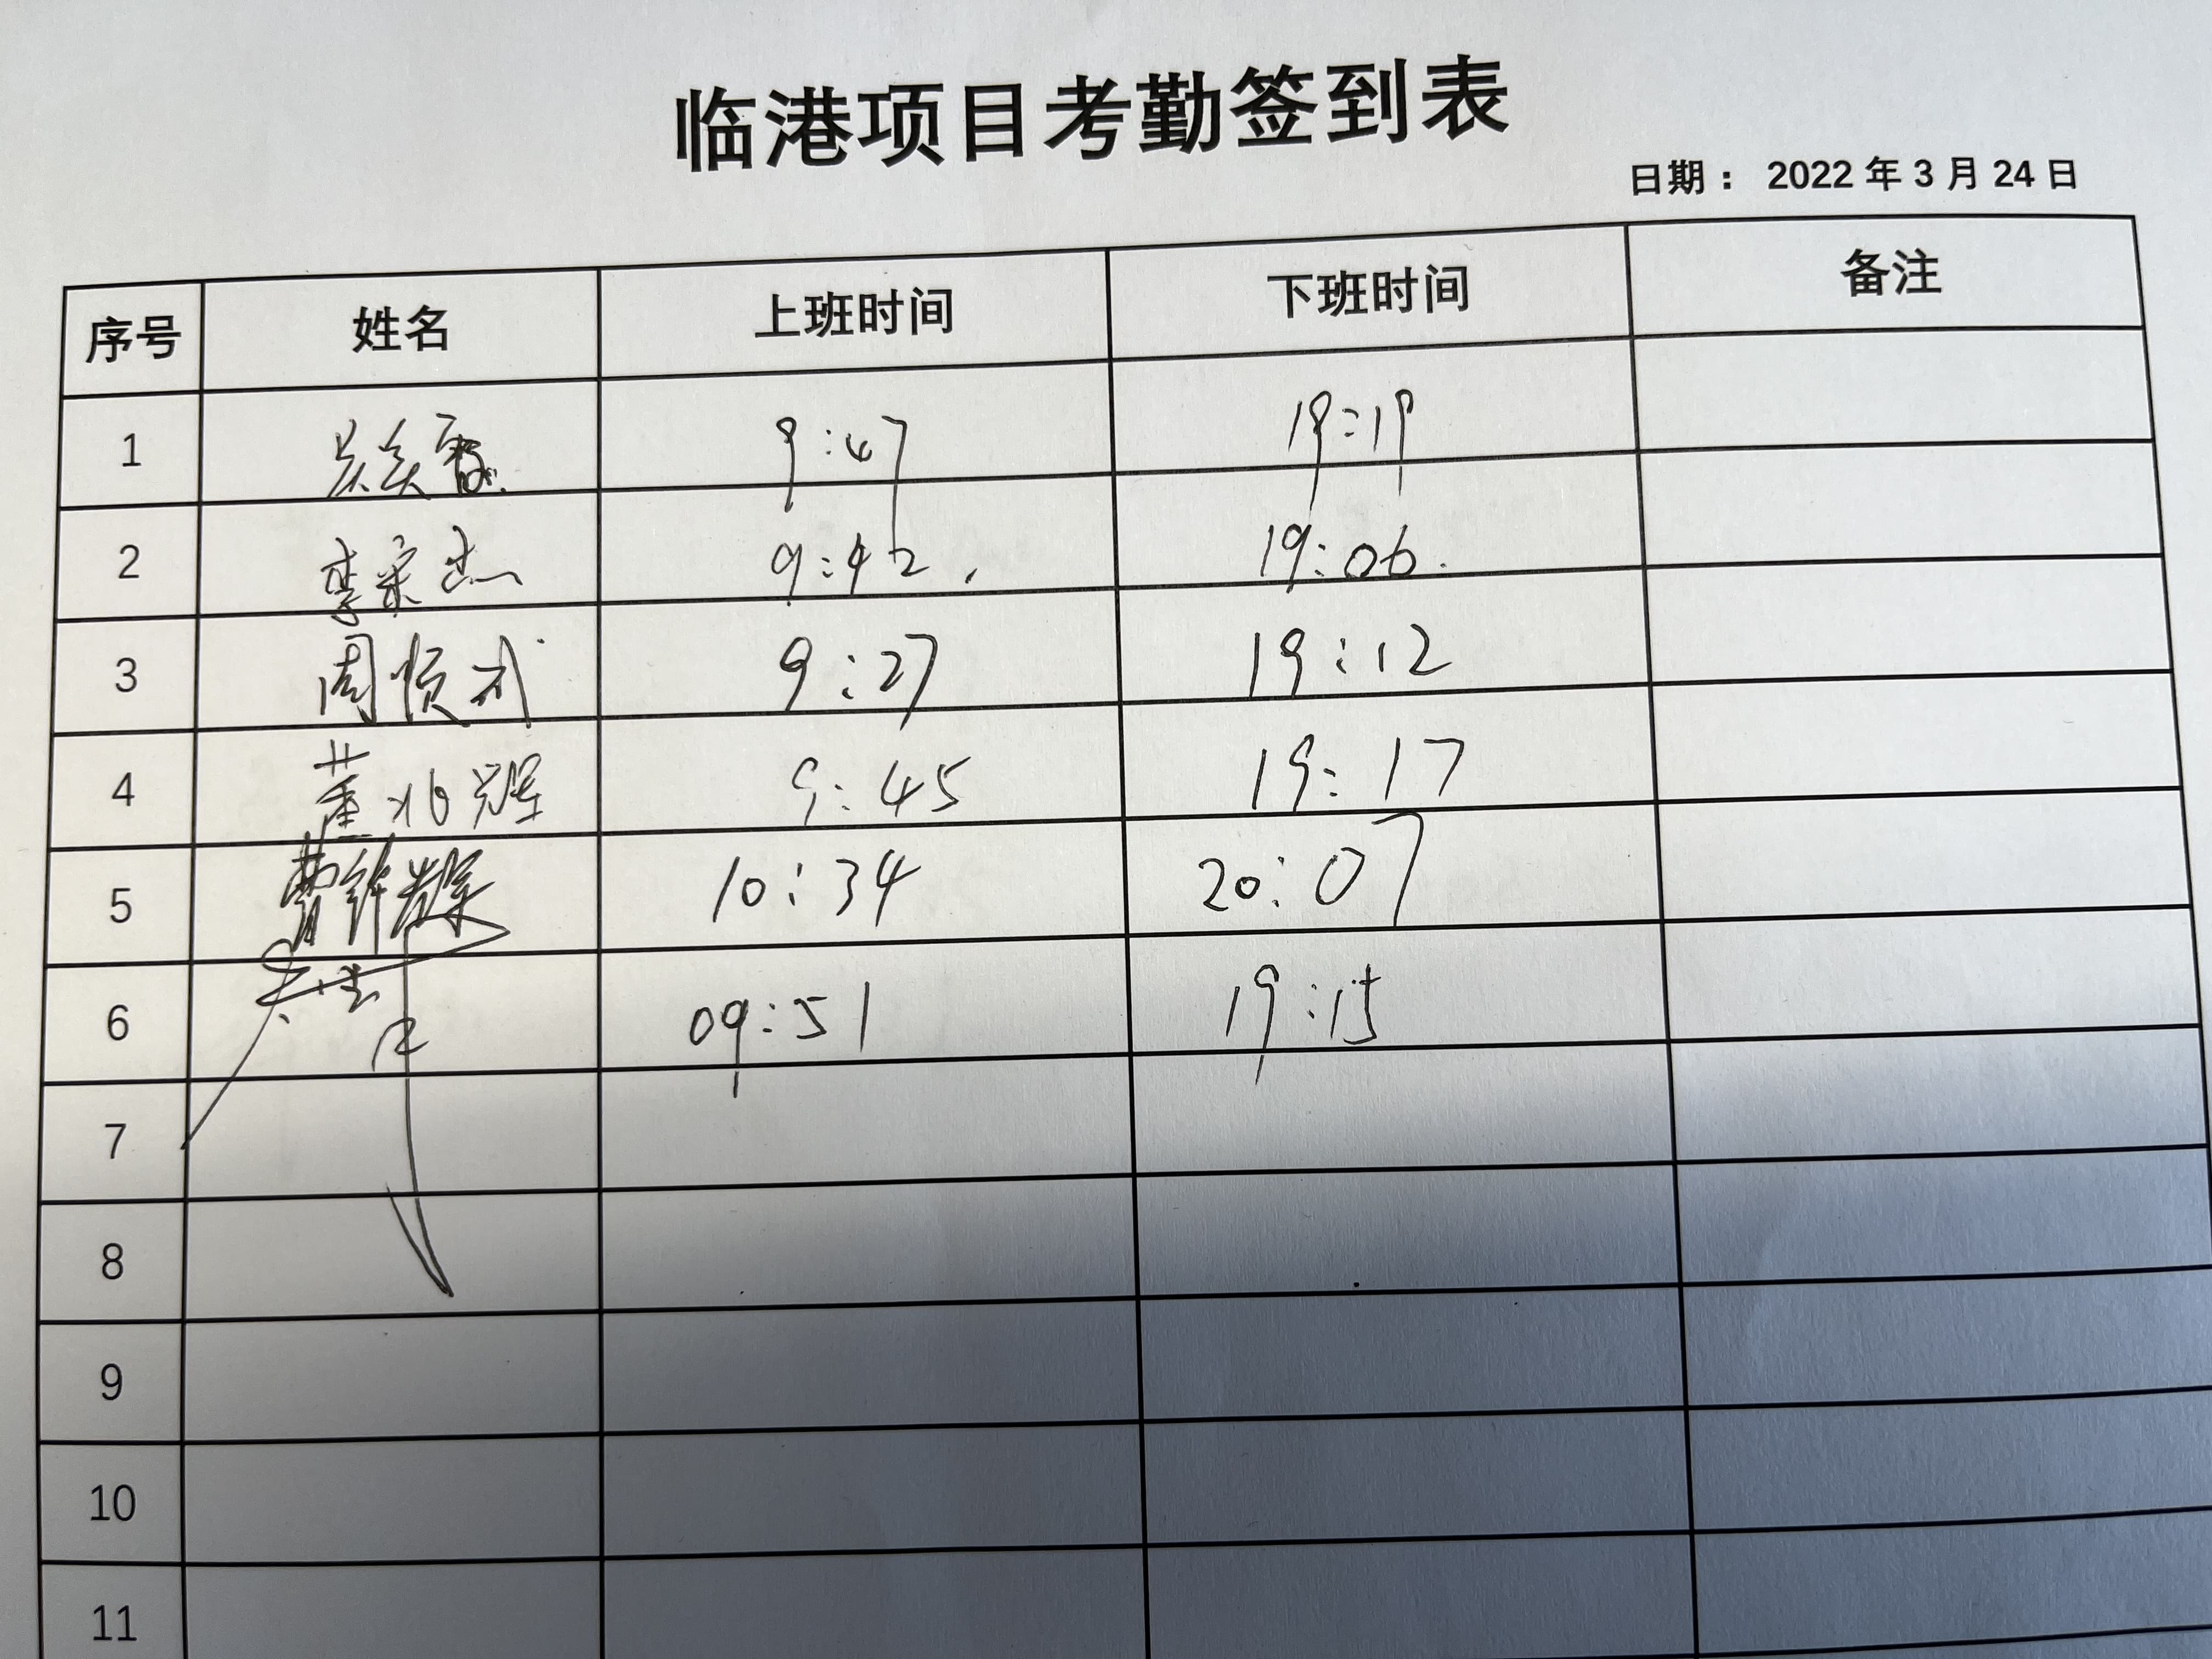 临港项目考勤签到表
日期： 2022 年 3 月 24 日
序号 姓名 上班时间 下班时间 备注
1 9:47 19:19
2 李宗杰 9:42. 19:06.
3 周顺利 9:27 19:12
4 董兆辉 9:45 19:17
5 10:34 20:07
6 09:51 19:15
7
8
9
10
11